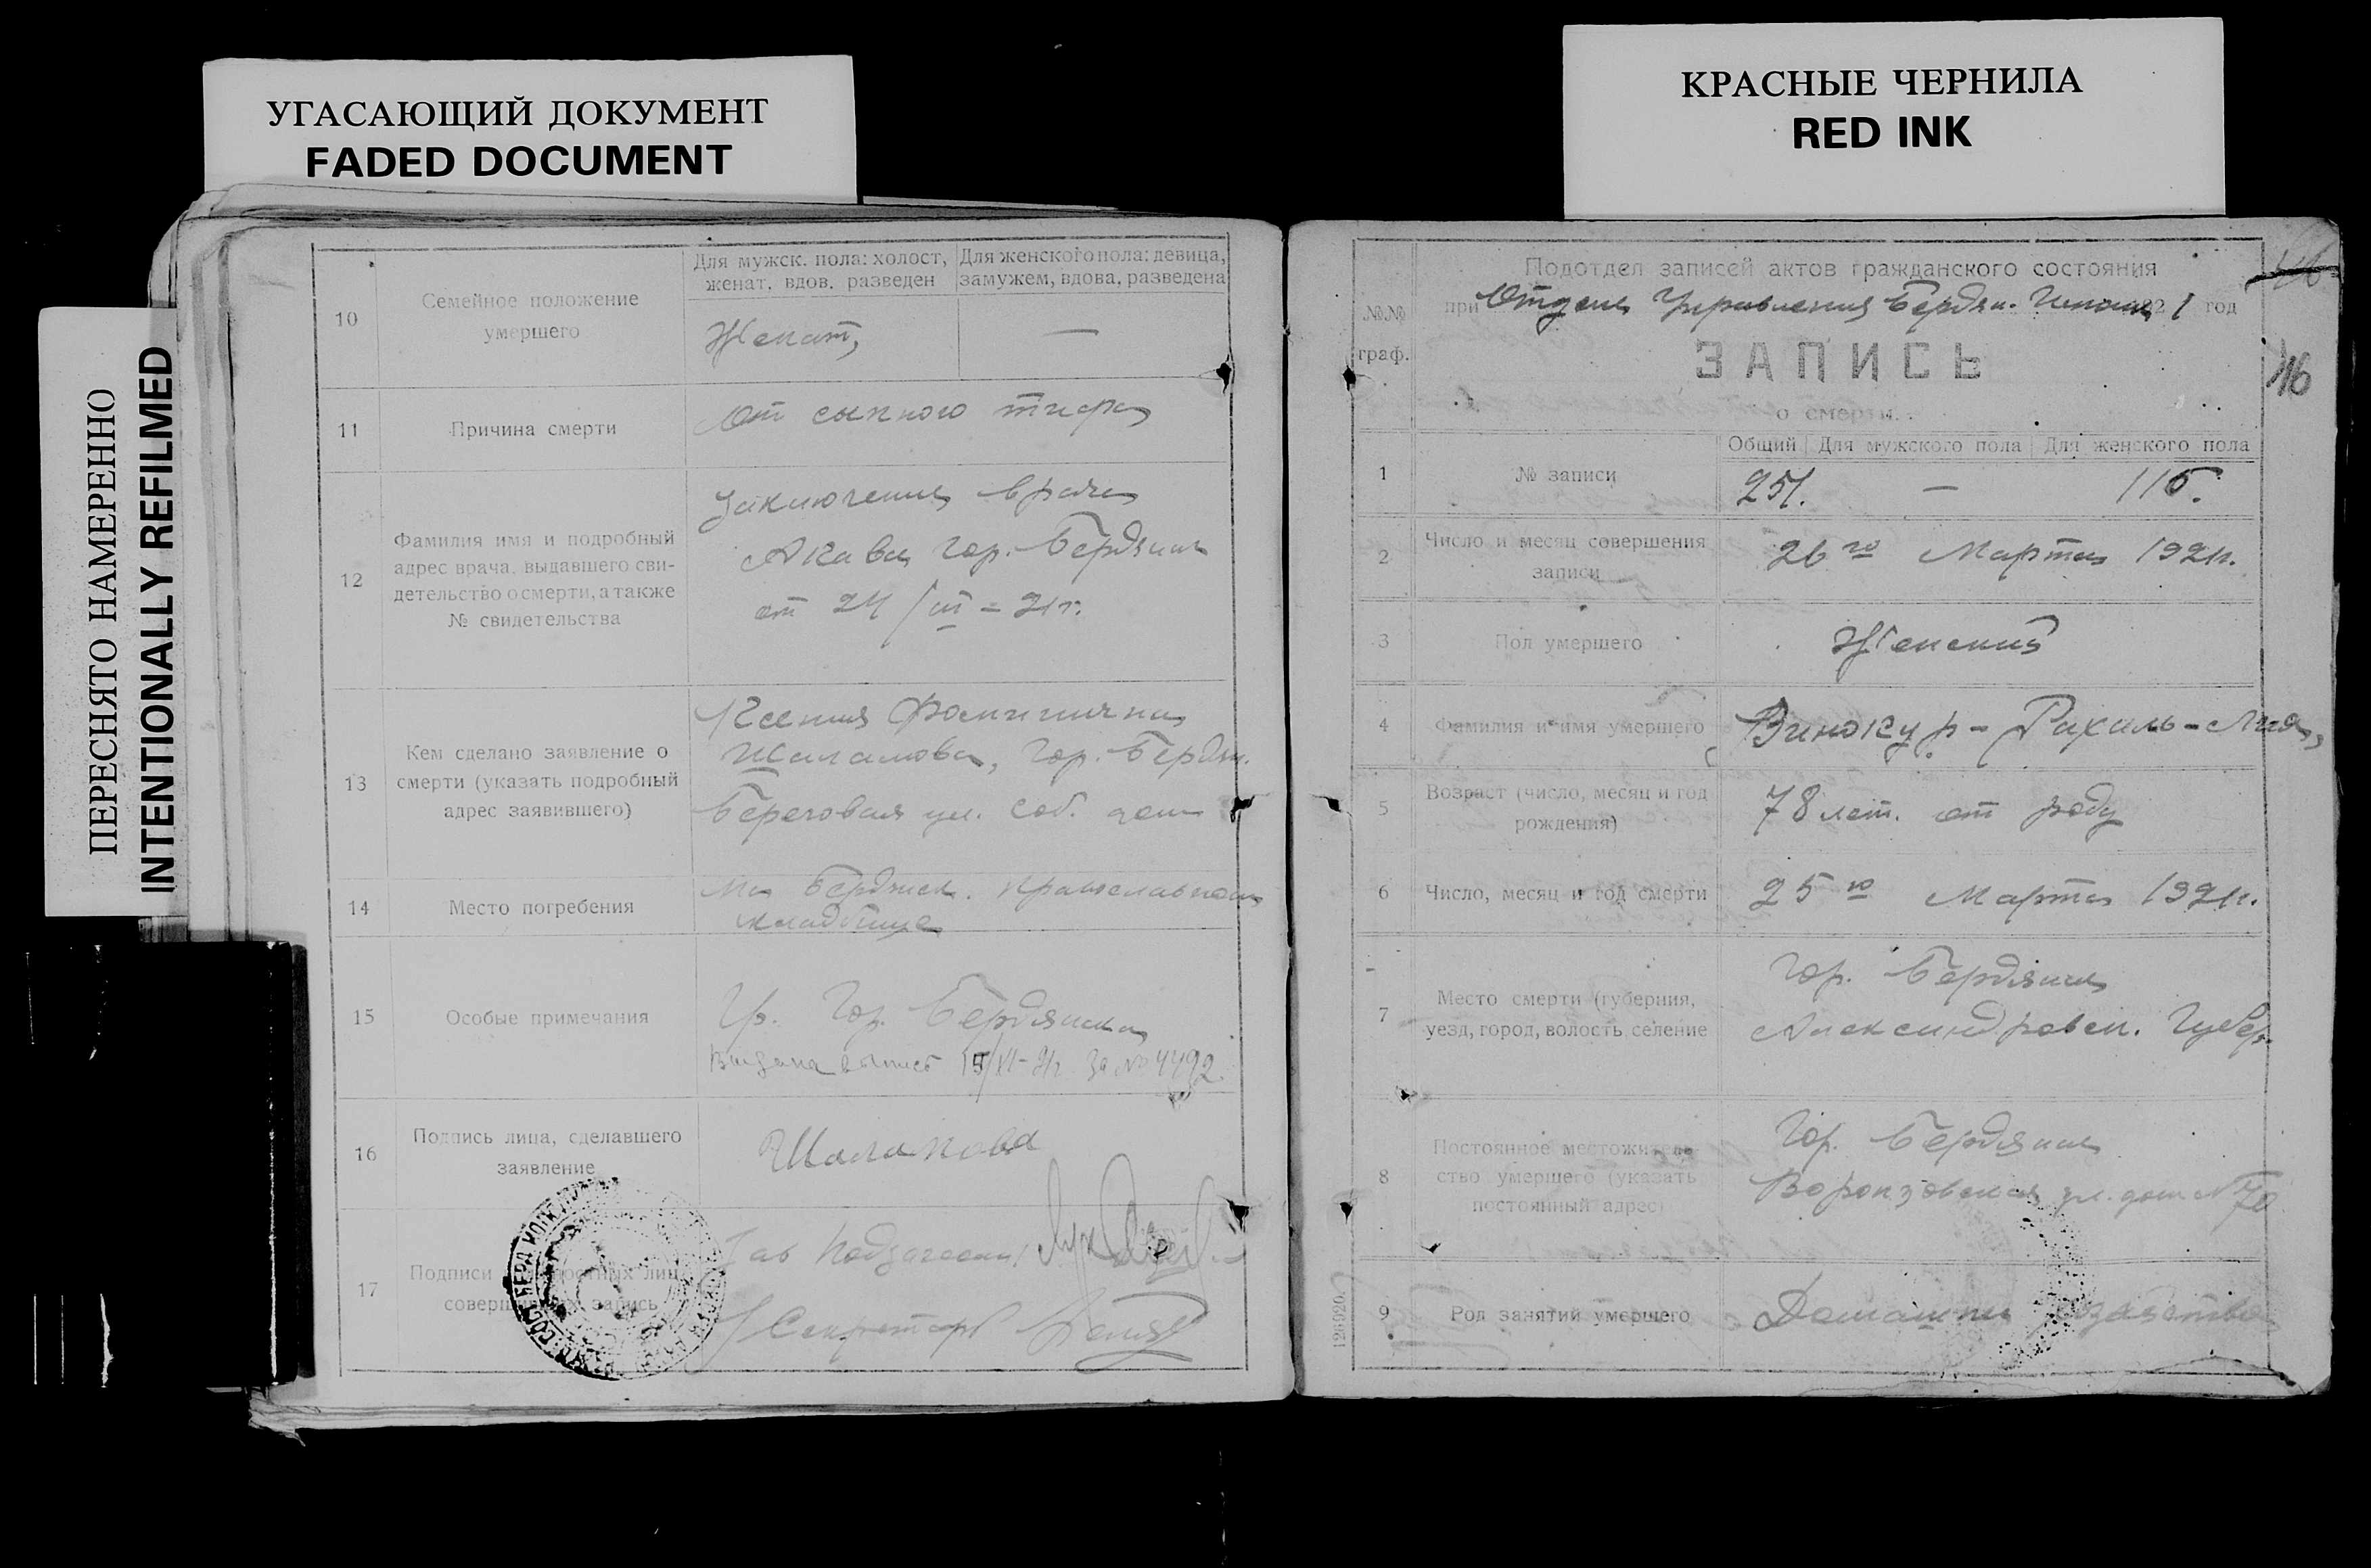 УГАСАЮЩИЙ ДОКУМЕНТ
FADED DOCUMENT
КРАСНЫЕ ЧЕРНИЛА
RED INK
ПЕРЕСНЯТО НАМЕРЕННО
INTENTIONALLY REFILMED
10
Семейное положение
умершего
Для мужск. пола: холост,
женат, вдов, разведен
Для женского пола: девица,
замужем, вдова, разведена
Женат,
—
11
Причина смерти
От сыпного тифа
12
Фамилия имя и подробный
адрес врача, выдавшего сви-
детельство о смерти, а также
№ свидетельства
Заключение врача
гор. Бердянск
от 24/III-21г.
13
Кем сделано заявление о
смерти (указать подробный
адрес заявившего)
Ксения
гор. Бердян.
Береговая ул. соб. дом
14
Место погребения
На Бердянск. православном
кладбище
15
Особые примечания
Гр. гор. Бердянска
Выдана выпись 15/XI-21г за № 4492
16
Подпись лица, сделавшего
заявление
17
Подписи должностных лиц
совершивших запись
Зав
Секретарь
№№
граф.
Подотдел записей актов гражданского состояния
при Отделе Управления Бердян. 1921 год
ЗАПИСЬ
о смерти.
46
46
1
№ записи
Общий
Для мужского пола
Для женского пола
251.
—
116.
2
Число и месяц совершения
записи
26го Марта 1921г.
3
Пол умершего
Женский
4
Фамилия и имя умершего
Винокур-Рахиль-Лия,
5
Возраст (число, месяц и год
рождения)
78 лет. от роду
6
Число, месяц и год смерти
25го Марта 1921г.
7
Место смерти (губерния,
уезд, город, волость, селение
Гор. Бердянск
Александровск. Губер.
8
Постоянное местожитель-
ство умершего (указать
постоянный адрес)
Гор. Бердянск
Воронцовская ул. дом № 70
9
Род занятий умершего
Домашн. хозяйство
126920.